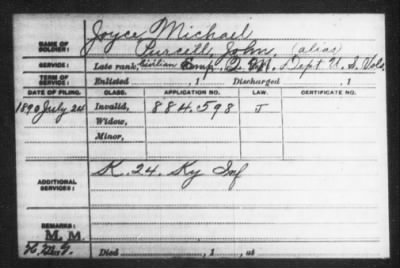 Joyce Michael
NAME OF SOLDIER: Purcell, John, (alias)
SERVICE: Late rank, Civilian Emp. Q. M. Dept U. S. Vols.
TERM OF SERVICE: Enlisted , Discharged , 1
DATE OF FILING. CLASS. APPLICATION NO. LAW. CERTIFICATE NO.
1890 July 24 Invalid, 884.598 J
Widow,
Minor,
ADDITIONAL SERVICES: K. 24. Ky Inf
REMARKS:
M. M.
Died , 1 , at